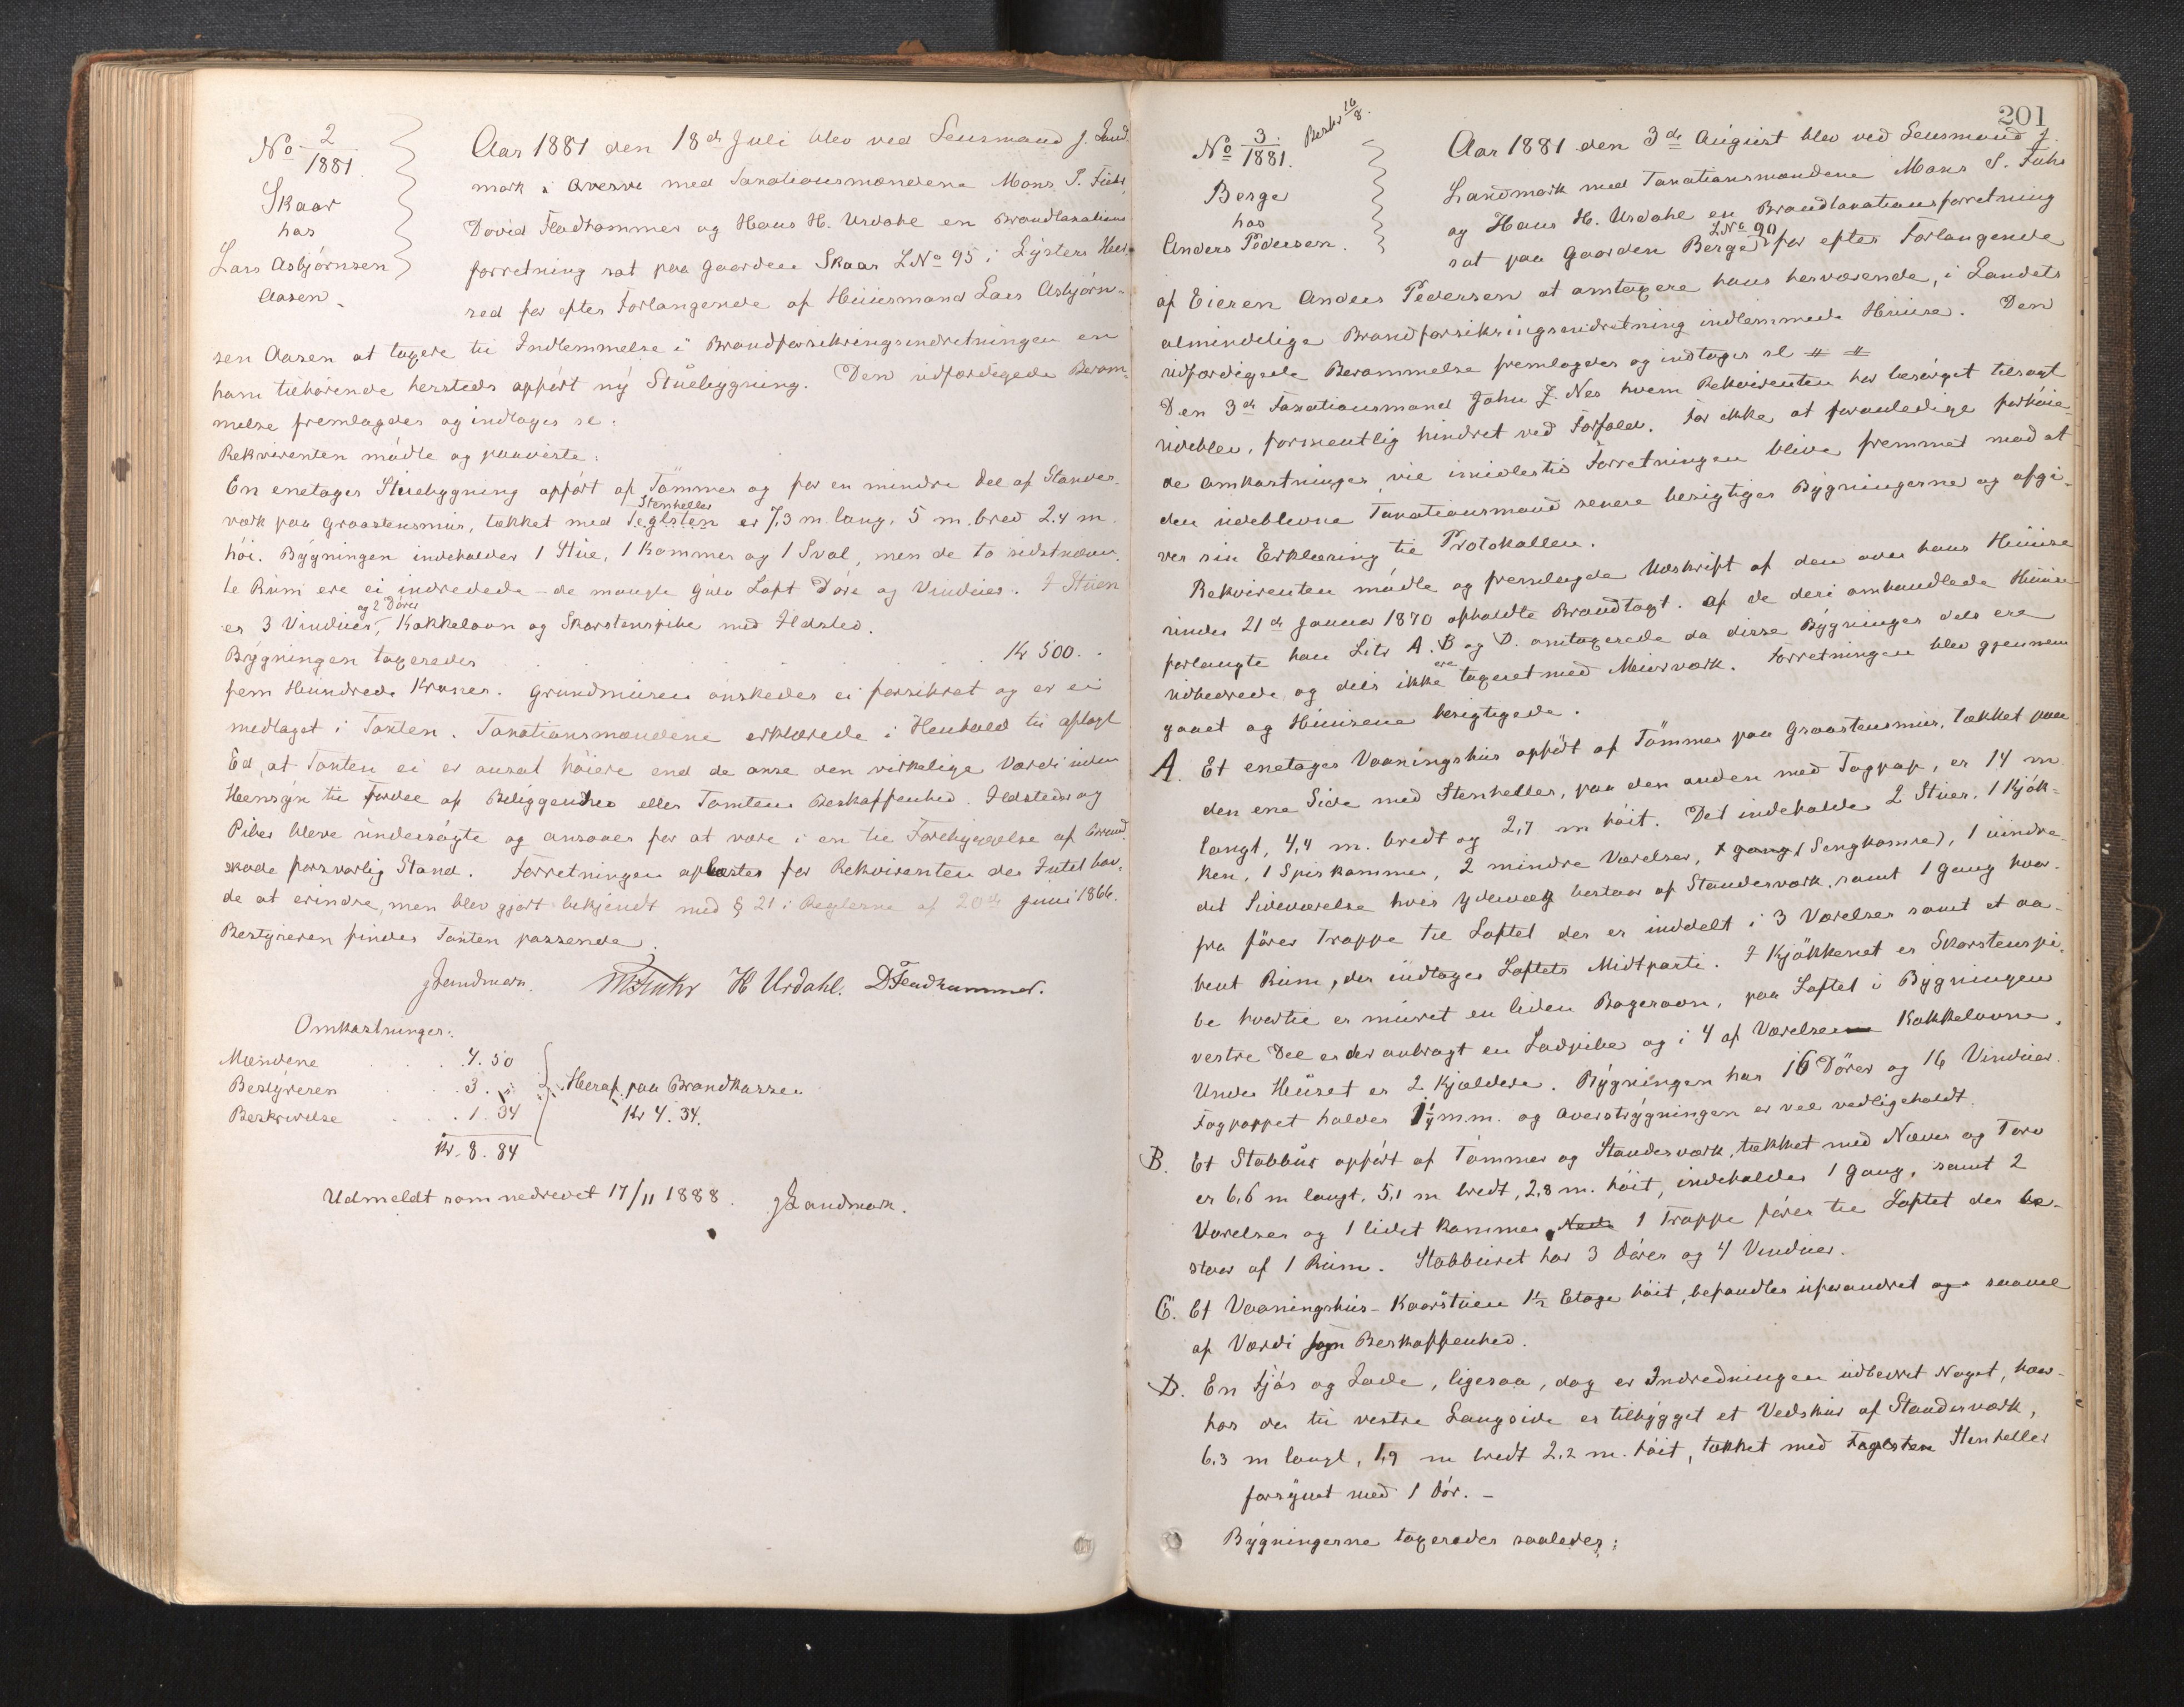 No 2/1881.
Skaar
hos
Lars Asbjörnsen
Aasen.
Aar 1881 den 18de Juli blev ved Lensmand J. Land-
mark i Overvær med Taxationsmændene Mons P. Fuhr,
David Fladhammer og Hans H. Urdahl en Brandtaxations
forretning sat paa Gaarden Skaar LNo 95 i Lysters Her-
red for efter Forlangende af Huusmand Lars Asbjörn-
sen Aasen at taxere til Indlemmelse i Brandforsikringsindretningen en
ham tilhörende hersteds opfört ny Stuebygning. Den udfærdigede Beram-
melse fremlagdes og indtages sl:
Rekvirenten mödte og paaviste:
En enetages Stuebygning opfört af Tömmer og for en mindre Del af Stander-
værk paa Graastensmur, tækket med Teglsten Stenheller er 7,3 m. lang, 5 m. bred 2.4 m.
höi. Bygningen indeholder 1 Stue, 1 Kammer og 1 Sval, men de to sidstnævn-
te Rum ere ei indredede - de mangle Gulv Loft Döre og Vinduer. I Stuen
er 3 Vinduer, og 2 Dörer Kakkelovn og Skorstenspibe med Ildsted.
Bygningen taxeredes . . . . . . Kr 500. -
fem Hundrede Kroner. Grundmuren önskedes ei forsikret og er ei
medtaget i Taxten. Taxationsmændene erklærede i Henhold til aflagt
Ed, at Taxten ei er ansat höiere end de anse den virkelige Værdi uden
Hensyn til Fordel af Beliggenhed eller Tomtens Beskaffenhed. Ildsteder og
Piber bleve undersögte og ansaaes for at være i en til Forebyggelse af Brand-
skade forsvarlig Stand. Forretningen oplæstes for Rekvirenten der Intet hav-
de at erindre, men blev gjort bekjendt med § 21 i Reglerne af 20de Juni 1866.
Bestyreren finder Taxten passende.
JLandmark. MFuhr H Urdahl. DFladhammer.
Omkostninger:
Mændene . . . 4.50
Bestyreren . . . 3. "
Beskrivelse . . . 1.34
Kr. 8.84
Heraf paa Brandkassen
Kr 4.34.
Udmeldt som nedrevet 17/11 1888. JLandmark.
201
No 3/1881.
Beskr 16/8.
Berge
hos
Anders Pedersen.
Aar 1881 den 3de August blev ved Lensmand J.
Landmark med Taxationsmændene Mons P. Fuhr
og Hans H. Urdahl en Brandtaxationsforretning
sat paa Gaarden Berge LNo 90 for efter Forlangende
af Eieren Anders Pedersen at omtaxere hans herværende, i Landets
almindelige Brandforsikringsindretning indlemmede Huuse. Den
udfærdigede Berammelse fremlagdes og indtages sl # #
Den 3de Taxationsmand John J. Nes hvem Rekvirenten har besörget tilsagt
udeblev, formentlig hindret ved Forfald. For ikke at foranledige forhöie-
de Omkostninger, vil imidlertid Forretningen blive fremmet mod at
den udeblevne Taxationsmand senere besigtiger Bygningerne og afgi-
ver sin Erklæring til Protokollen.
Rekvirenten mödte og fremlagde Udskrift af den over hans Huuse
under 21de Januar 1870 afholdte Brandtaxt. Af de deri omhandlede Huuse
forlangte han Litr A. B og D. omtaxerede da disse Bygninger dels ere
udbedrede og dels ikke ere taxeret med Muurværk. Forretningen blev gjennem-
gaaet og Huusene besigtigede.
A. Et enetages Vaaningshus opfört af Tömmer paa Graastensmur, tækket paa
den ene Side med Stenheller, paa den anden med Tagpap, er 14 m
langt, 4,4 m. bredt og 2,7 m höit. Det indeholder 2 Stuer, 1 Kjök-
ken, 1 Spiskammer, 2 mindre Værelser, 1 gang (Sengkamre), 1 uindre-
det Sideværelse hvis Ydervæg bestaar af Standerværk, samt 1 Gang hvor-
fra förer Trappe til Loftet der er inddelt i 3 Værelser samt et aa-
bent Rum, der indtager Loftets Midtparti. I Kjökkenet er Skorstenspi-
be hvortil er muret en liden Bagerovn, paa Loftet i Bygningens
vestre Del er der anbragt en Ladpibe og i 4 af Værelserne Kakkelovne.
Under Huset er 2 Kjældere. Bygningen har 16 Dörer og 16 Vinduer.
Tagpappet holder 1¼ m.m. og Overstrygningen er vel vedligeholdt.
B. Et Stabbur opfört af Tömmer og Standerværk, tækket med Næver og Torv
er 6,6 m langt, 5,1 m bredt, 2,8 m. höit, indeholder 1 Gang, samt 2
Værelser og 1 lidet Kammer. Neds 1 Trappe förer til Loftet der be-
staar af 1 Rum. Stabburet har 3 Dörer og 4 Vinduer.
C. Et Vaaningshus - Kaarstuen 1½ Etage höit, befandtes uforandret og saavel
af Værdi som Beskaffenhed.
D. En Fjös og Lade, ligesaa, dog er Indredningen udbedret Noget, hvor-
hos der til vestre Langside er tilbygget et Vedskur af Standerværk,
6.3 m langt, 1,9 m bredt 2.2 m. höit, tækket med Taglsten Stenheller
forsynet med 1 Dör. -
Bygningerne taxeredes saaledes: